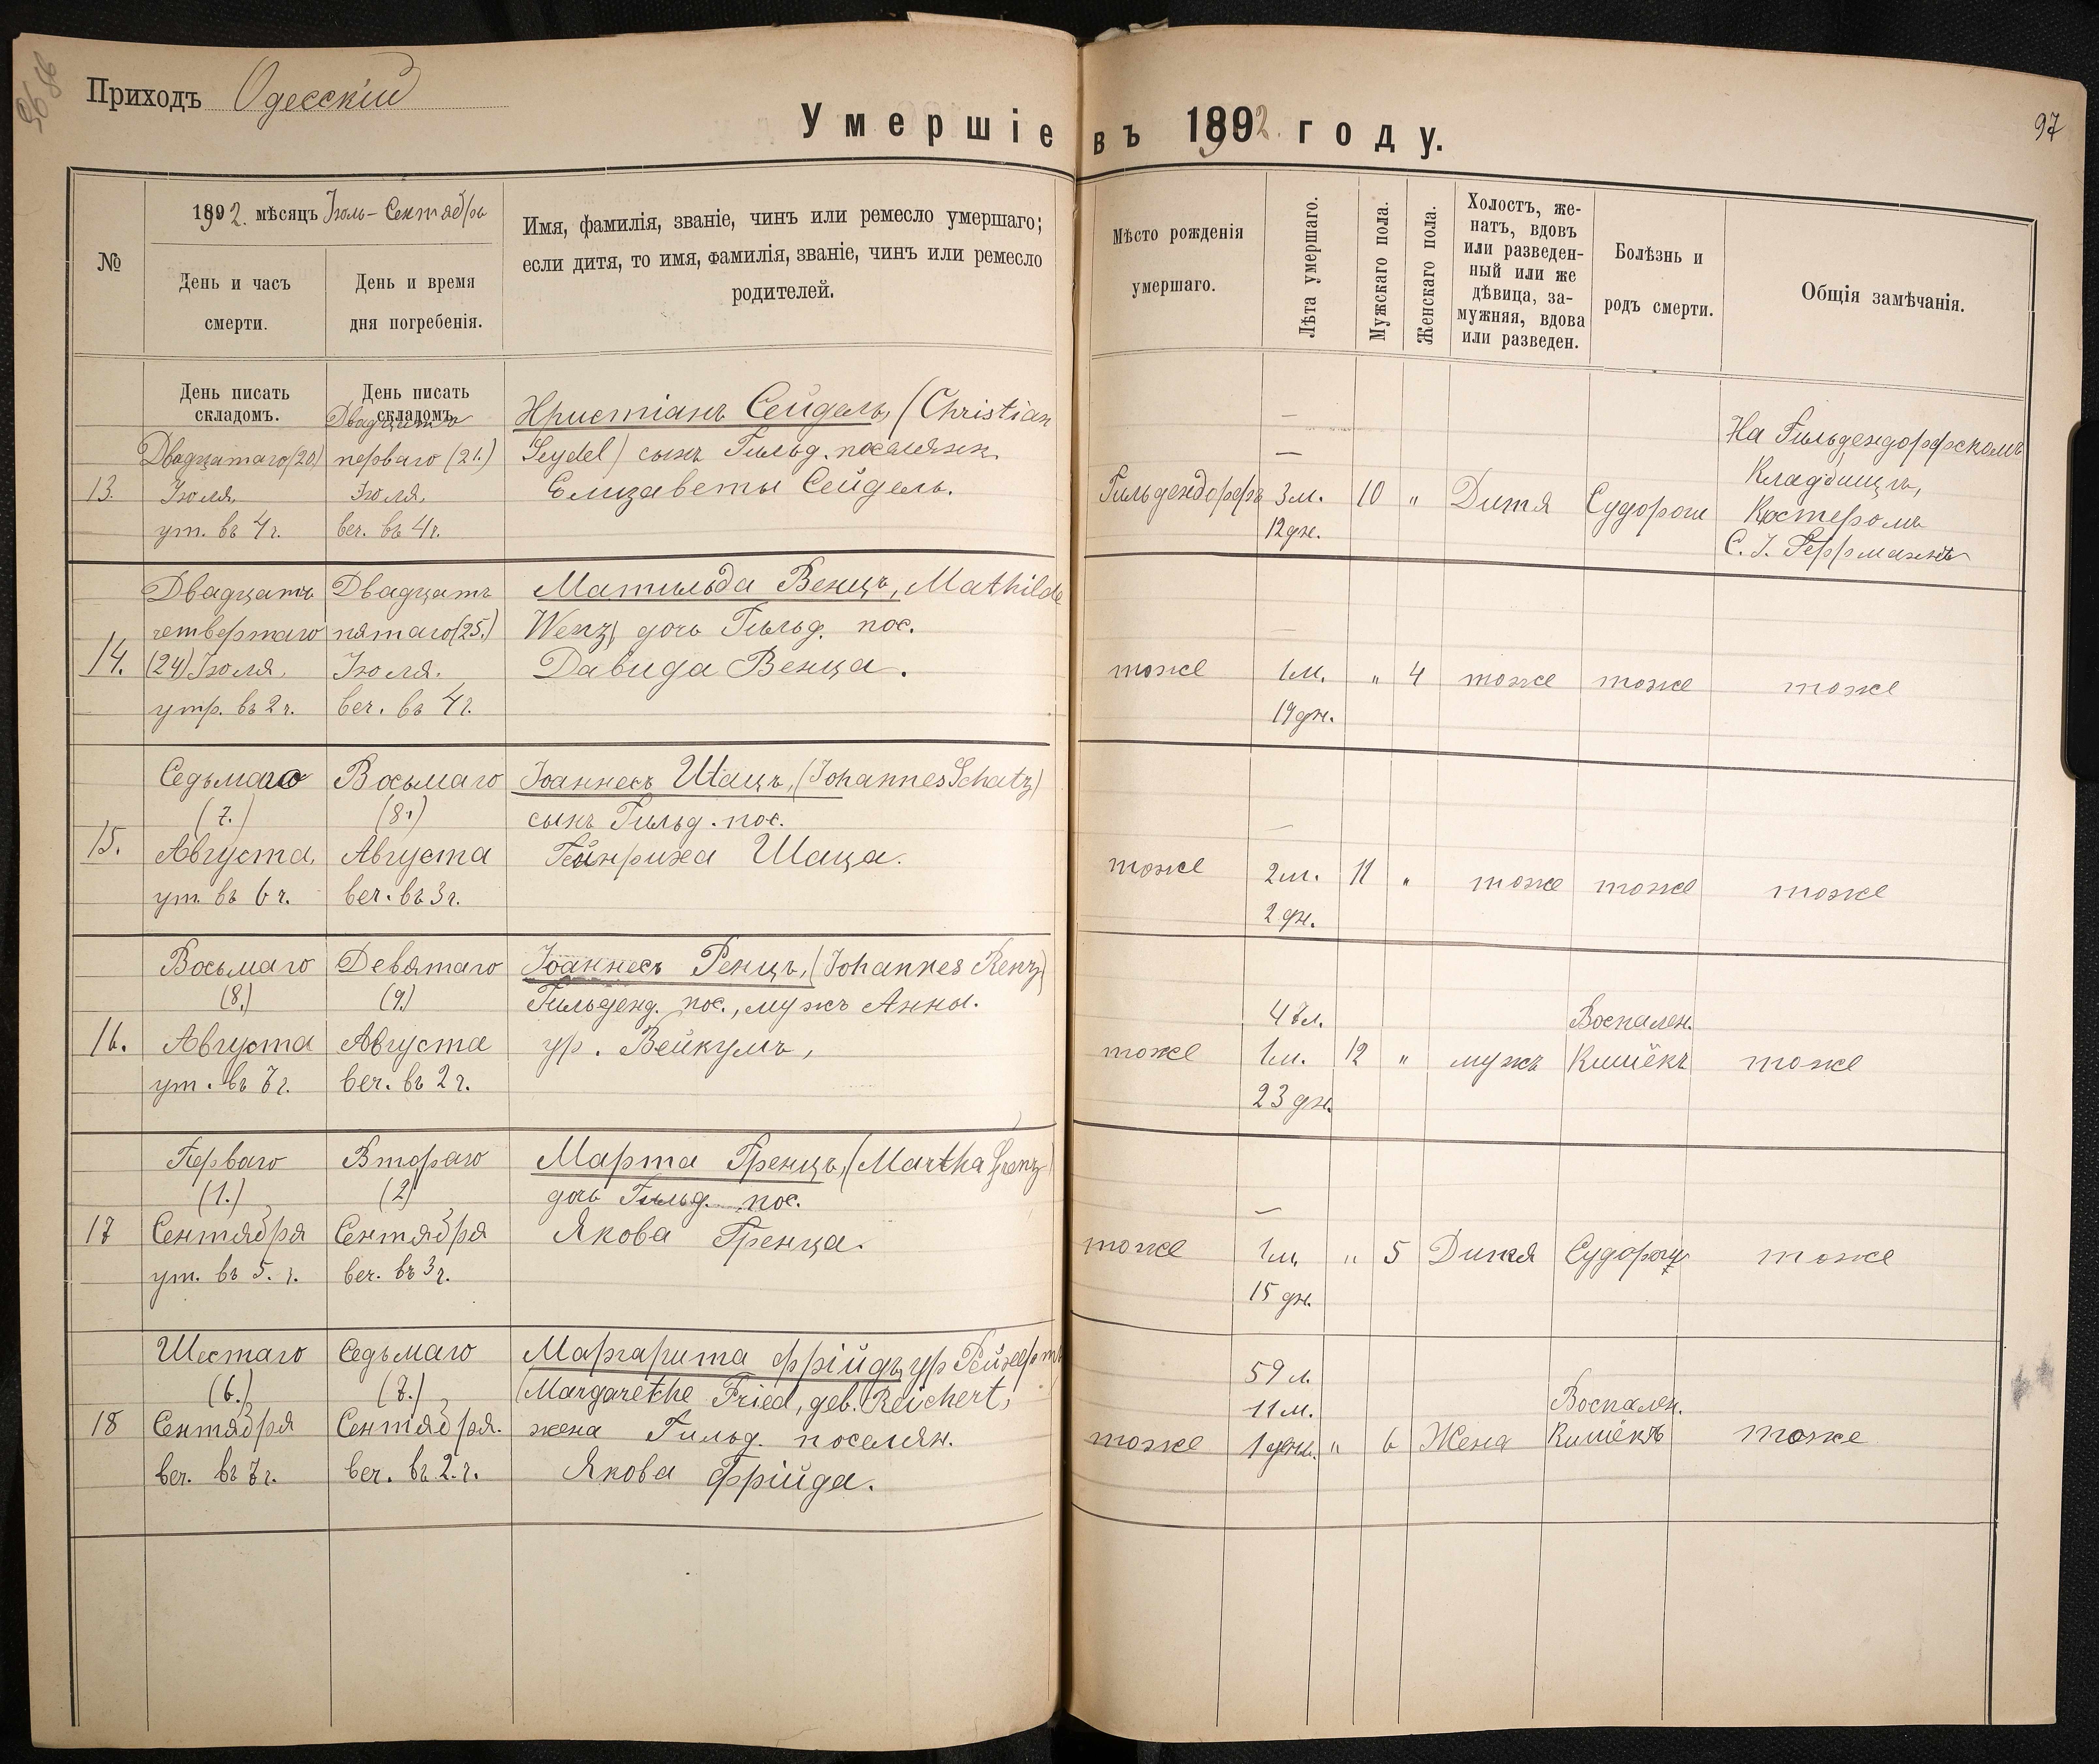 Приходъ Одесскій
Умершіе въ 1892 году.
97
№
1892. мѣсяцъ Іюль-Сентябрь
День и часъ
смерти.
День и время
дня погребенія.
Имя, фамилія, званіе, чинъ или ремесло умершаго;
если дитя, то имя, фамилія, званіе, чинъ или ремесло
родителей.
Мѣсто рожденія
умершаго.
Лѣта умершаго.
Мужскаго пола.
Женскаго пола.
Холостъ, же-
натъ, вдовъ
или разведен-
ный или же
дѣвица, за-
мужняя, вдова
или разведен.
Болѣзнь и
родъ смерти.
Общія замѣчанія.
День писать
складомъ.
День писать
складомъ.
13.
Двадцатаго (20)
Іюля,
ут. въ 4 ч.
Двадцать
перваго (21.)
Іюля,
веч. въ 4 ч.
Христіанъ Сейдель, (Christian
Seydel) сынъ Гильд. поселянк.
Елизаветы Сейдель.
Гильдендорфъ
—
—
3 м.
12 дн.
10
"
Дитя
Судороги
На Гильдендорфскомъ
Кладбищѣ,
Кистеромъ
С. І. Геррманнъ
14.
Двадцать
четвертаго
(24) Іюля,
утр. въ 2 ч.
Двадцать
пятаго (25.)
Іюля.
веч. въ 4 ч.
Матильда Венцъ, Mathilde
Wenz, дочь Гильд. пос.
Давида Венца.
тоже
—
1 м.
19 дн.
"
4
тоже
тоже
тоже
15.
Седьмаго
(7.)
Августа,
ут. въ 6 ч.
Восьмаго
(8.)
Августа
веч. въ 3 ч.
Іоаннесъ Шацъ, (Iohannes Schatz)
сынъ Гильд. пос.
Гейнриха Шаца.
тоже
—
2 м.
2 дн.
11
"
тоже
тоже
тоже
16.
Восьмаго
(8.)
Августа
ут. въ 7 ч.
Девятаго
(9.)
Августа
веч. въ 2 ч.
Іоаннесъ Ренцъ, (Iohannes Renz)
Гильденд. пос., мужъ Анны.
ур. Вейкумъ,
тоже
47 л.
1 м.
23 дн.
12
"
мужъ
Воспален.
Кишёкъ
тоже
17
Перваго
(1.)
Сентября
ут. въ 5. ч.
Втораго
(2)
Сентября
веч. въ 3 ч.
Марта Гренцъ, (Martha Grenz)
дочь Гильд. пос.
Якова Гренца.
тоже
—
1 м.
15 дн.
"
5
Дитя
Судороги
тоже
18
Шестаго
(6.)
Сентября
веч. въ 7 ч.
Седьмаго
(7.)
Сентября.
веч. въ 2. ч.
Маргарита Фрійдъ, ур Рейхертъ
(Margarethe Fried, geb. Reichert,
жена Гильд. поселян.
Якова Фрійда.
тоже
59 л.
11 м.
1 день.
"
6
Жена
Воспален.
Кишёкъ
тоже